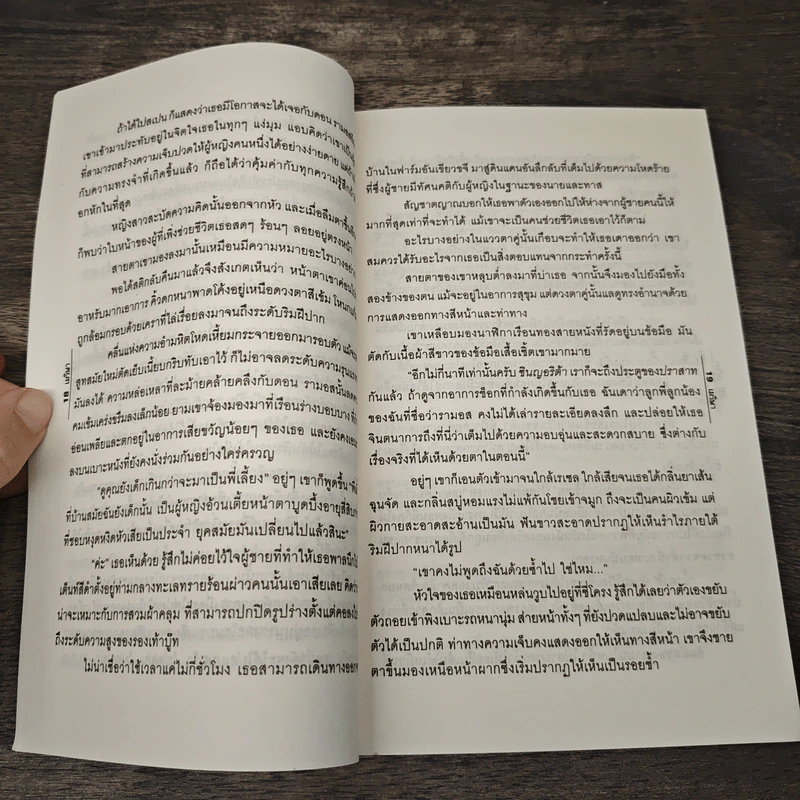 ถ้าได้ไปสเปน ก็แสดงว่าเธอมีโอกาสจะได้เจอกับดอน
เขาเข้ามาประทับอยู่ในจิตใจเธอในทุกๆ แง่มุม แอบคิดว่าเขาเป็น
ที่สามารถสร้างความเจ็บปวดให้ผู้หญิงคนหนึ่งได้อย่างง่ายดาย
กับความทรงจำที่เกิดขึ้นแล้ว ก็ถือได้ว่าคุ้มค่ากับทุกความรู้สึก
อกหักในที่สุด
หญิงสาวสะบัดความคิดนั้นออกจากหัว และเมื่อลืมตาขึ้น
ก็พบว่าใบหน้าของผู้ที่เพิ่งช่วยชีวิตเธอสดๆ ร้อนๆ ลอยอยู่ตรงหน้า
สายตาเขามองลงมานั้นเหมือนมีความหมายอะไรบางอย่าง
พอได้สติกลับคืนมาแล้วจึงสังเกตเห็นว่า หน้าตาเขาค่อน
อาหรับมากเอาการ คิ้วดกหนาพาดโค้งอยู่เหนือดวงตาสีเข้ม
ถูกล้อมกรอบด้วยเคราที่ไล่เรื่อยลงมาจนถึงระดับริมฝีปาก
คลื่นแห่งความอำมหิตโหดเหี้ยมกระจายออกมารอบตัว
สูทสมัยใหม่ตัดเย็บเนี้ยบกริบทับเอาไว้ ก็ไม่อาจลดระดับความรุนแรง
มันลงได้ ความหล่อเหลาที่ละม้ายคล้ายคลึงกับดอน รามอสนั้น
คมเข้มเคร่งขรึมลงเล็กน้อย ยามเขาจ้องมองมาที่เรือนร่างบอบบาง
อ่อนเพลียและตกอยู่ในอาการเสียขวัญน้อยๆ ของเธอ และยังคง
ลงบนเบาะหนังที่ยังคงนั่งร่วมกันอย่างใคร่ครวญ
"ดูคุณยังเด็กเกินกว่าจะมาเป็นพี่เลี้ยง" อยู่ๆ เขาก็พูดขึ้น
ที่บ้านสมัยฉันยังเด็กนั้น เป็นผู้หญิงอ้วนเตี้ยหน้าตาบูดบึ้งอายุสี่สิบ
ที่ชอบหงุดหงิดหัวเสียเป็นประจำ ยุคสมัยมันเปลี่ยนไปแล้วสินะ"
"ค่ะ" เธอเห็นด้วย รู้สึกไม่ค่อยไว้ใจผู้ชายที่ทำให้เธอพาลนึก
เต็นท์สีดำตั้งอยู่ท่ามกลางทะเลทรายร้อนผ่าวคนนั้นเอาเสียเลย
น่าจะเหมาะกับการสวมผ้าคลุม ที่สามารถปกปิดรูปร่างตั้งแต่คอลง
ถึงระดับความสูงของรองเท้าบู๊ท
ไม่น่าเชื่อว่าใช้เวลาแค่ไม่กี่ชั่วโมง เธอสามารถเดินทางออก
18 นภิษา
บ้านในฟาร์มอันเขียวขจี มาสู่ดินแดนอันลึกลับที่เต็มไปด้วยความโหดร้าย
ที่ซึ่งผู้ชายมีทัศนคติกับผู้หญิงในฐานะของนายและทาส
สัญชาตญาณบอกให้เธอพาตัวเองออกไปให้ห่างจากผู้ชายคนนี้ให้
มากที่สุดเท่าที่จะทำได้ แม้เขาจะเป็นคนช่วยชีวิตเธอเอาไว้ก็ตาม
อะไรบางอย่างในแววตาคู่นั้นเกือบจะทำให้เธอเดาออกว่า เขา
สมควรได้รับอะไรจากเธอเป็นสิ่งตอบแทนจากกระทำครั้งนี้
สายตาของเขาหลุบต่ำลงมาที่บ่าเธอ จากนั้นจึงมองไปยังมือทั้ง
สองข้างของตน แม้จะอยู่ในอาการสุขุม แต่ดวงตาคู่นั้นแลดูทรงอำนาจด้วย
การแสดงออกทางสีหน้าและท่าทาง
เขาเหลือบมองนาฬิกาเรือนทองสายหนังที่รัดอยู่บนข้อมือ มัน
ตัดกับเนื้อผ้าสีขาวของข้อมือเสื้อเชิ้ตเขามากมาย
"อีกไม่กี่นาทีเท่านั้นครับ ซินญอริต้า เราก็จะถึงประตูของปราสาท
กันแล้ว ถ้าดูจากอาการช็อกที่กำลังเกิดขึ้นกับเธอ ฉันเดาว่าลูกพี่ลูกน้อง
ของฉันที่ชื่อว่ารามอส คงไม่ได้เล่ารายละเอียดลงลึก และปล่อยให้เธอ
จินตนาการถึงที่นี่ว่าเต็มไปด้วยความอบอุ่นและสะดวกสบาย ซึ่งต่างกับ
เรื่องจริงที่ได้เห็นด้วยตาในตอนนี้"
อยู่ๆ เขาก็เอนตัวเข้ามาจนใกล้เรเชล ใกล้เสียจนเธอได้กลิ่นยาเส้น
ฉุนจัด และกลิ่นสบู่หอมแรงไม่แพ้กันโชยเข้าจมูก ถึงจะเป็นคนผิวเข้ม แต่
ผิวกายสะอาดสะอ้านเป็นมัน ฟันขาวสะอาดปรากฏให้เห็นรำไรภายใต้
ริมฝีปากหนาได้รูป
"เขาคงไม่พูดถึงฉันด้วยซ้ำไป ใช่ไหม..."
หัวใจของเธอเหมือนหล่นวูบไปอยู่ที่ซี่โครง รู้สึกได้เลยว่าตัวเองขยับ
ตัวถอยเข้าพิงเบาะรถหนานุ่ม ส่ายหน้าทั้งๆ ที่ยังปวดแปลบและไม่อาจขยับ
ตัวได้เป็นปกติ ท่าทางความเจ็บคงแสดงออกให้เห็นทางสีหน้า เขาจึงชาย
ตาขึ้นมองเหนือหน้าผากซึ่งเริ่มปรากฏให้เห็นเป็นรอยช้ำ
19 นภิษา